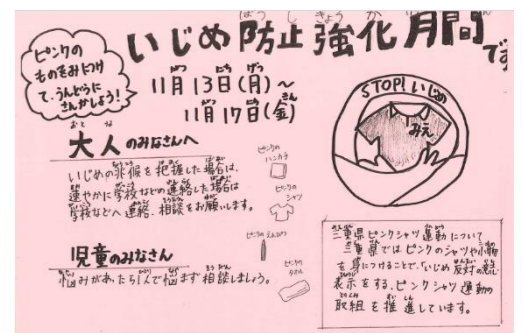 いじめ防止強化月間です
ピンクの
ものをみにつけ
て、うんどうに
さんかしよう!
11月13日(月)〜
11月17日(金)
大人のみなさんへ
いじめの兆候を把握した場合は、
速やかに学校などの連絡した場合は
学校などへ連絡、相談をお願いします。
ピンクの
ハンカチ
ピンクの
シャツ
ピンクの
えんぴつ
ピンクの
タオル
児童のみなさん
悩みがあったら1人で悩まず相談しましょう。
STOP!いじめ
みえ
三重県ピンクシャツ運動について
三重県ではピンクのシャツや小物
を身につけることで、「いじめ反対」の意思
表示をする、ピンクシャツ運動の
取組を推進しています。